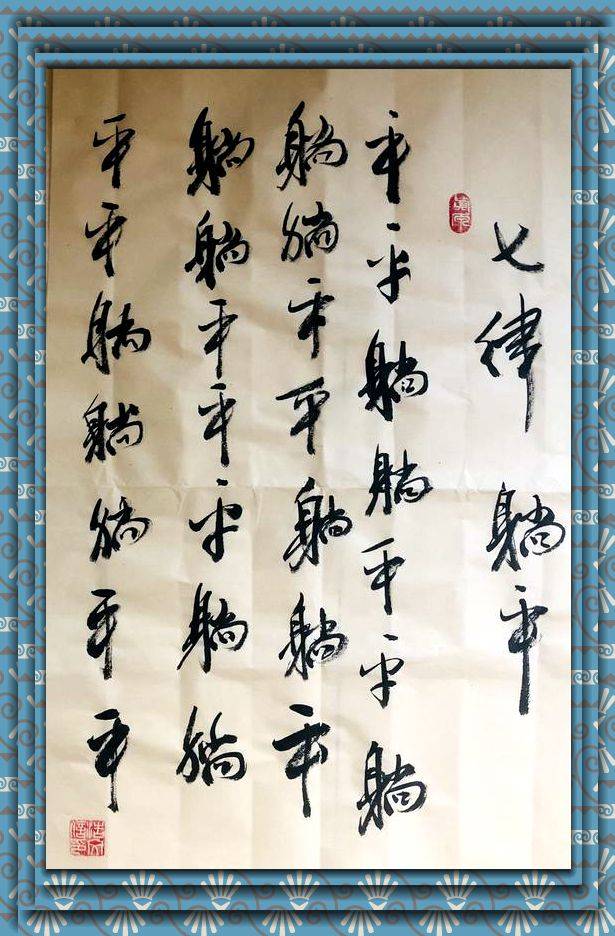 七律 躺平
平平躺躺平平躺
躺躺平平躺躺平
躺躺平平平躺躺
平平躺躺躺平平